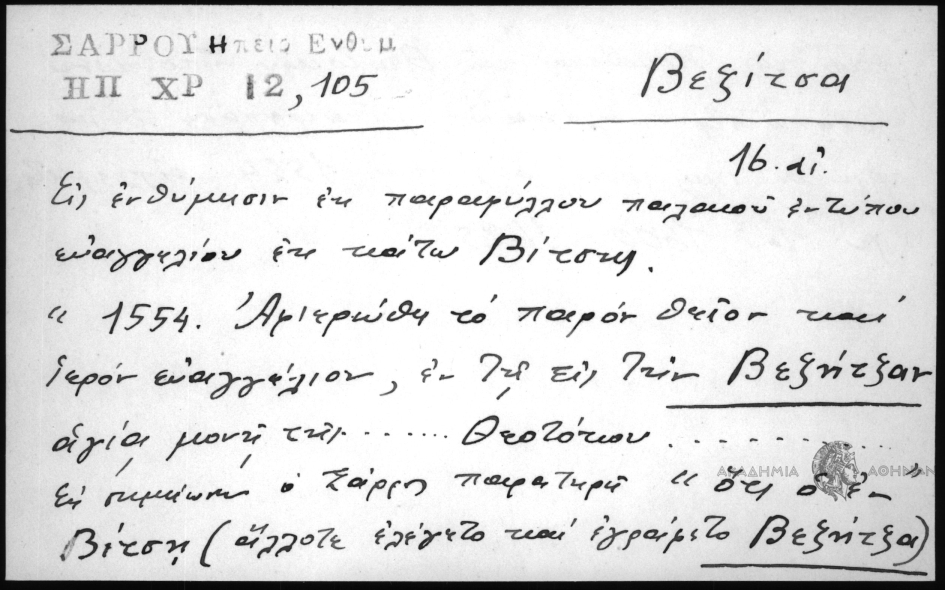 ΣΑΡΡΟΥ Ηπειρ Ενθυμ
ΗΠ ΧΡ 12, 105
Βεξίτσα
16. αἰ.
Εἰς ἐνθύμησιν ἐκ παραφύλλου παλαιοῦ ἐντύπου
εὐαγγελίου ἐκ κάτω Βίτσης.
" 1554. Ἀφιερώθη τὸ παρόν θεῖον καί
ἱερόν εὐαγγέλιον, ἐν τῇ εἰς τήν Βεξνήτζαν
ἁγίᾳ μονῇ τῆς ...... Θεοτόκου ..........
Εἰς σημείωσιν ὁ Σάρρος παρατηρεῖ "ὅτι ὁ ἐν
Βίτσῃ (ἄλλοτε ἐλέγετο καί ἐγράφετο Βεξνήτζα)
ΑΚΑΔΗΜΙΑ ΑΘΗΝΩΝ